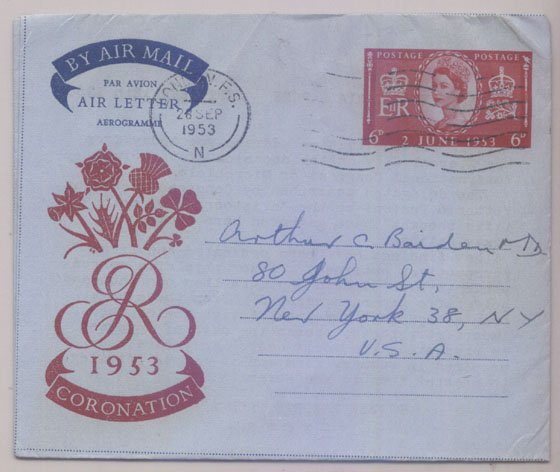 BY AIR MAIL
PAR AVION
AIR LETTER
AEROGRAMME
N.F.S.
28 SEP
1953
N
POSTAGE POSTAGE
E R
6D 2 JUNE 1953 6D
Arthur C. Baiden MD
80 John St,
New York 38, NY
U.S.A.
ER
1953
CORONATION